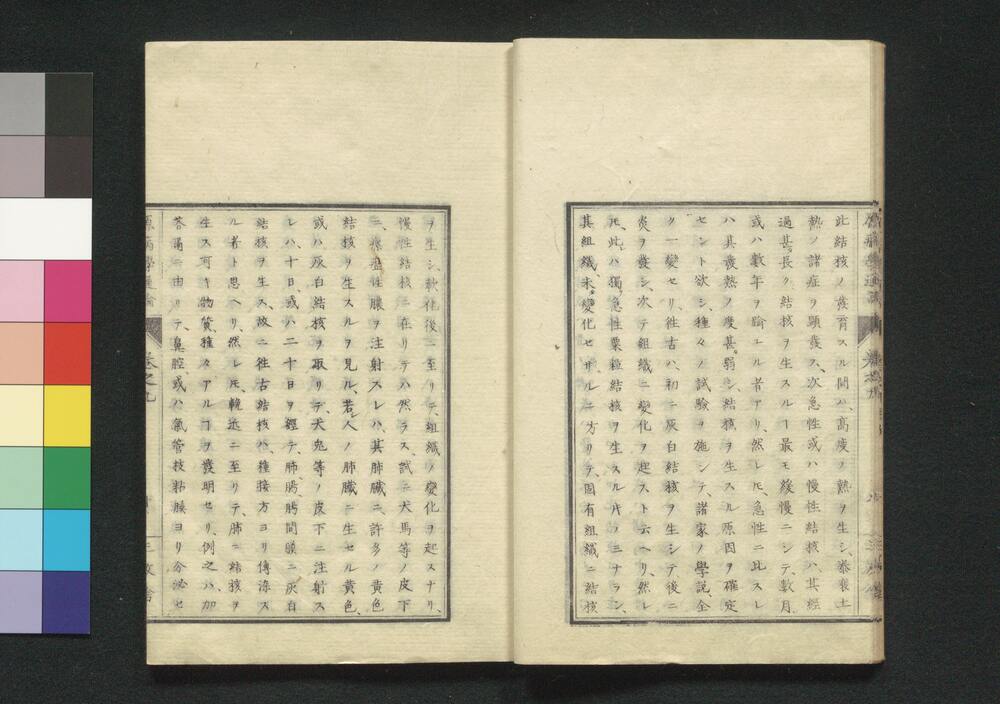 此結核ノ發育スル間ハ、高度ノ熱ヲ生シ、泰衰土
熱ノ諸症ヲ顯發ス、次急性或ハ慢性結核ハ、其經
過甚タ長ク結核ヲ生スルヿ最モ緩慢ニシテ、數月
或ハ數年ヲ踰エル者アリ、然レ𪜈、急性ニ此スレ
ハ其發熱ノ度甚タ弱シ、結核ヲ生スル原因ヲ確定
セント欲シ、種々ノ試驗ヲ施シテ、諸家ノ學說、全
ク一變セリ、徃古ハ、初ニ灰白結核ヲ生シテ後ニ
炎ヲ發シ、次テ組織ニ變化ヲ起スト云ヘリ、然レ
𪜈、此ハ獨急性粟粒結核ヲ生スル片ノミナラン、
其組織、未タ變化セサルニ方リテ、固有組織ニ結核
ヲ生シ、軟化後ニ至リテ、組織ノ變化ヲ起スナリ、
慢性結核ニ在リテハ然ラス、試ニ犬馬等ノ皮下
ニ、瘰癧性膿ヲ注射スレハ、其肺臟ニ、許多ノ黃色
結核ヲ生スルヲ見ル、若シ人ノ肺臟ニ生セル黃色、
或ハ灰白結核ヲ取リテ、犬兎等ノ皮下ニ注射ス
レハ、十日或ハ二十日ヲ經テ、肺胞間膜ニ灰白
結核ヲ生ス、故ニ徃古結核ハ、種接方ヨリ傳染ス
ル者ト思ヘリ、然レ𪜈、輓近ニ至リテ、肺ニ結核ヲ
生ス可キ物質、種々アルヿヲ發明セリ、例之ハ、加
答爾ニ由リテ、鼻腔、或ハ氣管枝粘膜ヨリ分泌セ
原病學通論 卷之九